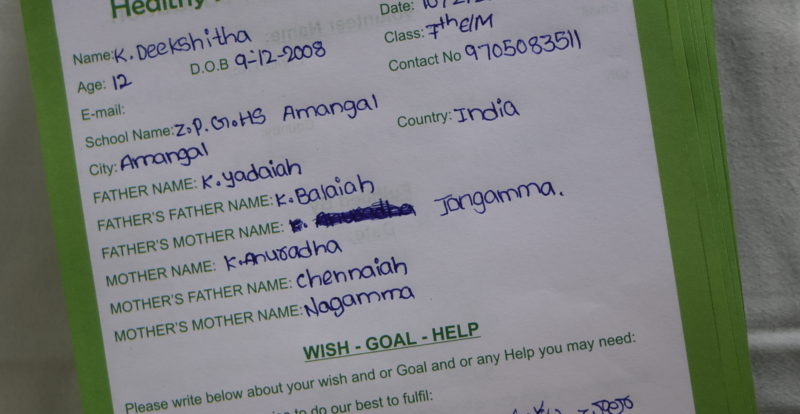 Healthy
Date:
Name: K. Deekshitha
Class: 7th E/M
Age: 12 D.O.B 9-12-2008
Contact No 9705083511
E-mail:
School Name: Z.P.G.HS Amangal
City: Amangal
Country: India
FATHER NAME: K. Yadaiah
FATHER'S FATHER NAME: K. Balaiah
FATHER'S MOTHER NAME: Jangamma.
MOTHER NAME: K. Anuradha
MOTHER'S FATHER NAME: Chennaiah
MOTHER'S MOTHER NAME: Nagamma
WISH - GOAL - HELP
Please write below about your wish and or Goal and or any Help you may need:
to do our best to fulfil: